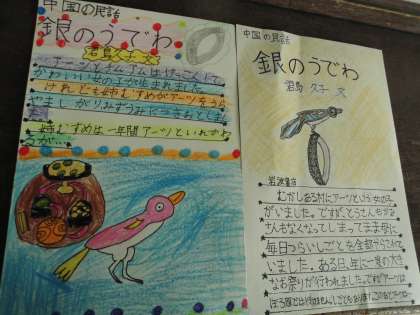 中国の民話
銀のうでわ
君島久子 文
かわいい女の子が生まれました
けれども姉むすめがアーツをうら
姉むすめは一年間アーツといれかわ
中国の民話
銀のうでわ
君島 久子 文
岩波書店
むかしある村にアーツという女の子
がいました。ですが、とうさんもかあ
さんもなくなってしまってまま母に
毎日つらいしごとを全部やらされて
いました。ある日、年に一度の大き
なお祭りが行われました。ですがアーツは